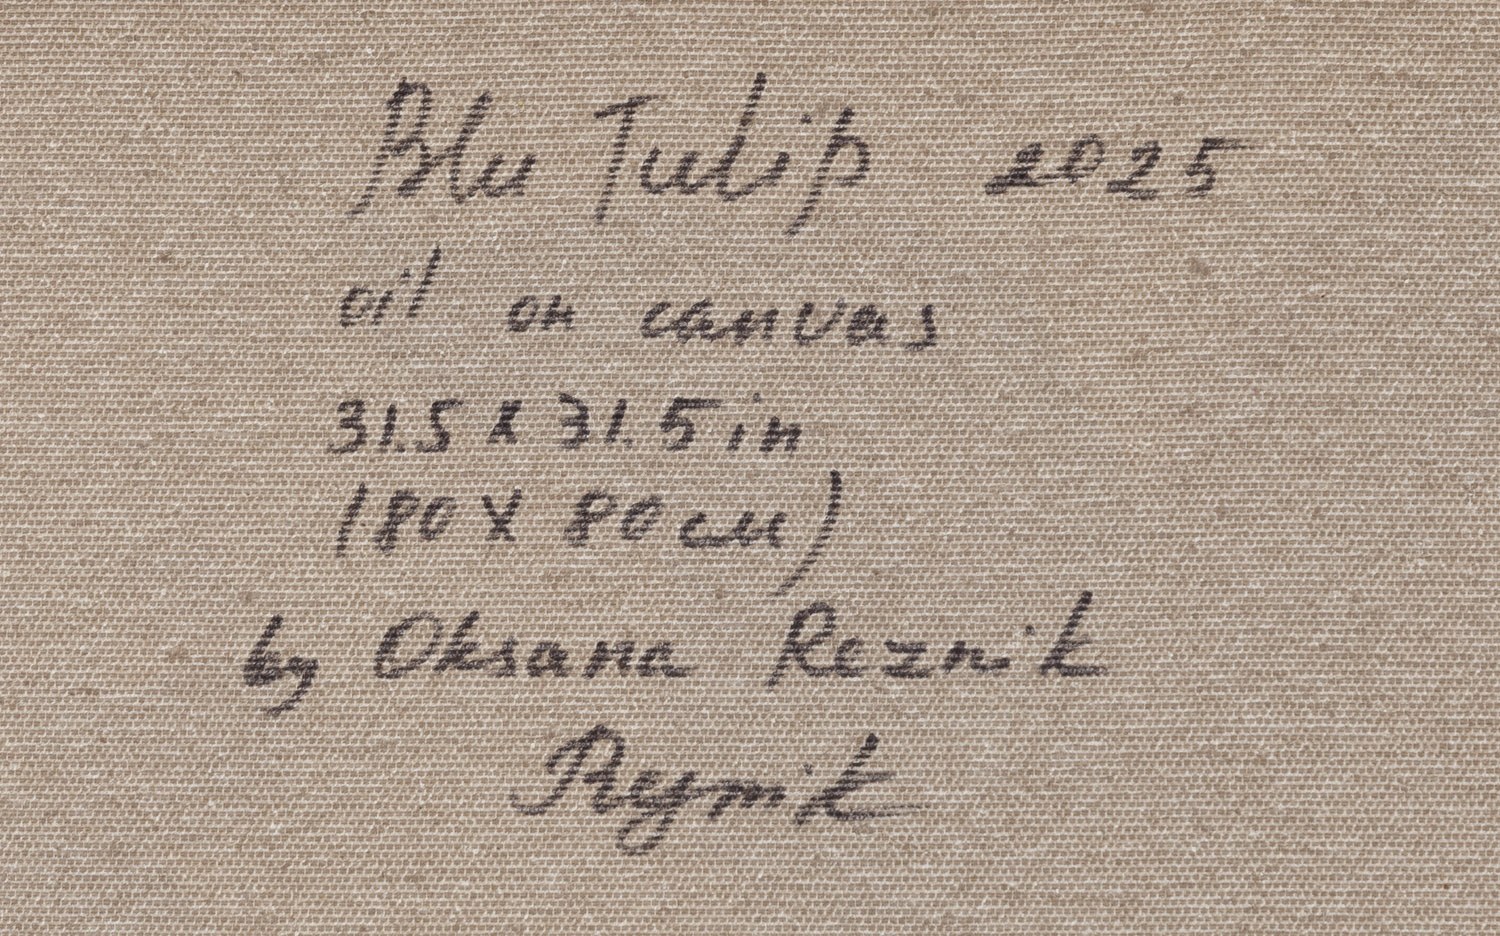 Blu Tulip 2025
oil on canvas
31.5 x 31.5 in
(80 x 80 см)
by Oksana Reznik
Reznik